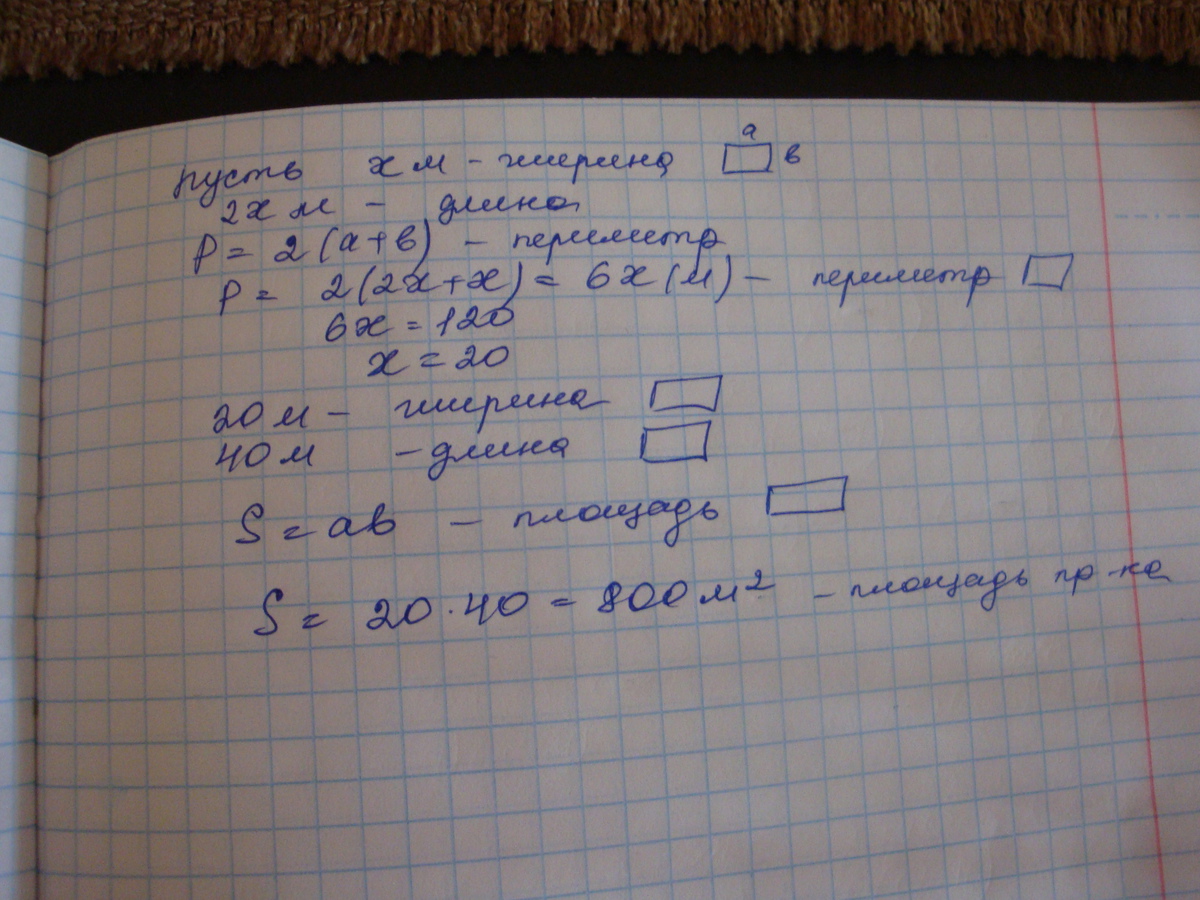 a
пусть х м - ширина в
2х м - длина
P = 2(а+в) - периметр
P = 2(2х+х) = 6х(м) - периметр
6х = 120
х = 20
20 м - ширина
40 м - длина
S = ав - площадь
S = 20·40 = 800 м² - площадь пр-ка